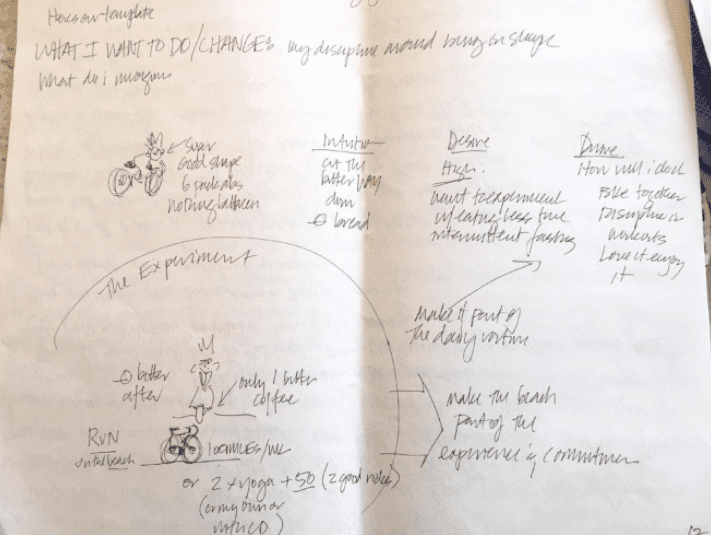 Heres our template
WHAT I WANT TO DO/CHANGES my discipline around being in shape
What do i
Super
Good shape
6 pack abs
nothing
Intuition
cut the
butter way
down
⊖ bread
Desire
High.
want to experiment
w eating less time
intermittent fasting
Drive
How will i do it
Bike together
Discipline in
workouts
Love it enjoy
it
The Experiment
Make it part of
The daily routine
⊖ butter
after
only 1 butter
coffee
make the beach
part of the
experience & commitment
RUN
on the beach
100 MILES/WK
or 2 x yoga + 50 (2 good rides)
(on my own or